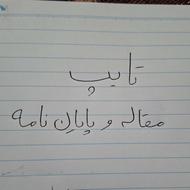 تایپ
مقاله و پایان نامه